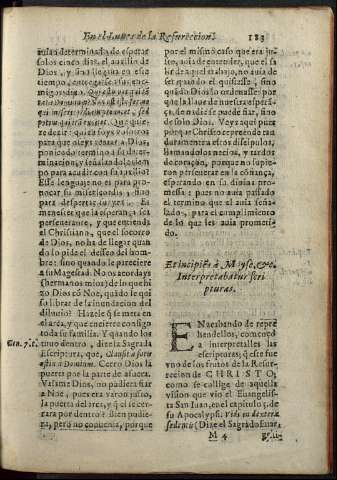 En el Lunes de la Resurrecion. 183
auia determinado de esperar
solos cinco dias, el auxilio de
Dios, y sino llegaua en esse
tiempo, entregarse a sus enemigos
y se redezir: quiẽ soys vosotros
para que oleys
ponido termino a su determinacion
y señalando le tiempo
para acudir con su auxilio?
Esse lenguaje no es para prouocar
su misericordia; sino
para despertar su yra. Es
menester que la esperan a sea
perseuerante, y que entienda
el Christiano, que el socorro
de Dios, no ha de llegar quando
lo pide el desseo del hombre:
sino quando le pareciere
a su Magestad. No os acordays
(hermanos mios) de lo que hizo
Dios cõ Noe, quãdo le quiso
librar de la inundacion del
diluuio? Hazele q̃ se meta en
el arca, y que encierre consigo
toda su familia. Y quando los
tuuo dentro, dize la Sagrada
Gen. 7. c.
Escritura, que, Clausit a foris
ostium Dominus. Cerrò Dios la
puerta por la parte de afuera.
Valame Dios, no pudiera fiar
a Noe, pues era varon justo,
la puerta del arca, y q̃ el se cerrara
por dentro? Bien pudiera,
pero no conuenia, porque
por el mismo caso que era justo,
auia de entender, que el salir
de aquel trabajo, no auia de
ser quando el quisiesse, sino
quando Dios lo ordenasse: por
que la llaue de nuestra esperãça,
de nadie se puede fiar, sino
de solo Dios. Veys aqui pues
porque Christo reprende tan
duramente a estos discipulos,
llamandolos necios, y tardos
de coraçon, porque no supieron
perseuerar en la cõnança,
esperando en su diuina promessa:
pues no auia passado
el termino que el auia señalado,
para el cumplimiento
de lo que les auia prometido.
Et incipiẽs à Moyse, &c.
Interpretabatur scripturas.
EN acabando de reprehendellos,
començò
a interpretalles las
escripturas; q̃ este fue
vno de los frutos de la Resurreccion
de CHRISTO,
como se collige de aquella
vision que vio el Euangelista
San Iuan, en el capitulo 5. de
su Apocalypsi. Vidi in dextera
sedentis (Dize el Sagrado Euan-
M 4